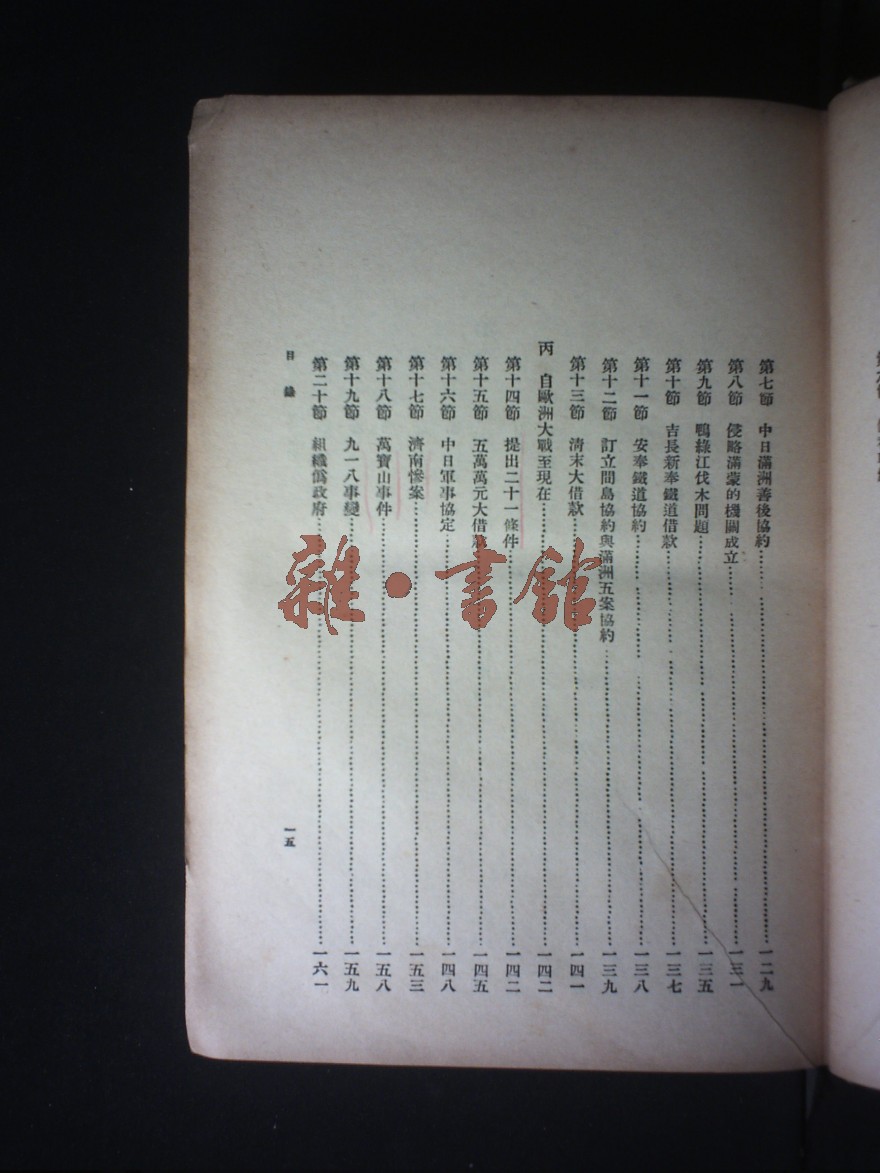 第七節　中日滿洲善後協約……一二九
第八節　侵略滿蒙的機關成立……一三一
第九節　鴨綠江伐木問題……一三五
第十節　吉長新奉鐵道借款……一三七
第十一節　安奉鐵道協約……一三八
第十二節　訂立間島協約與滿洲五案協約……一三九
第十三節　清末大借款……一四一
丙　自歐洲大戰至現在……一四二
第十四節　提出二十一條件……一四二
第十五節　五萬萬元大借款……一四五
第十六節　中日軍事協定……一四八
第十七節　濟南慘案……一五三
第十八節　萬寶山事件……一五八
第十九節　九一八事變……一五九
第二十節　組織僞政府……一六一
目錄　一五
雜·書館